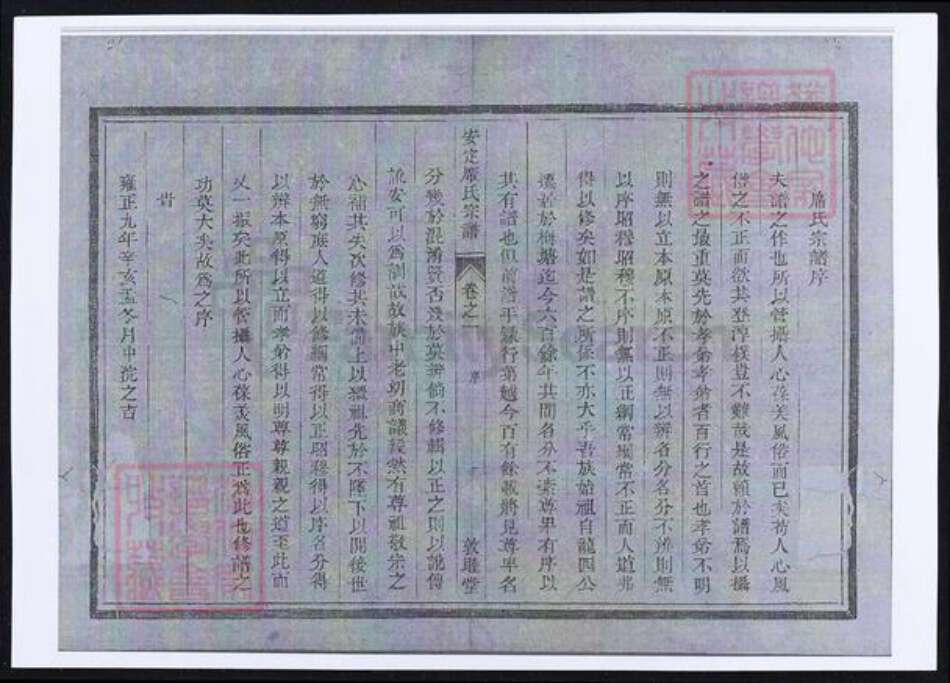 席氏宗譜序
夫譜之作也所以管攝人心葆美風俗而已矣苟人心風
俗之不正而欲其登淳俗豈不難哉是故賴於譜焉以攝
之譜之最重莫先於孝弟孝弟者百行之首也孝弟不明
則無以立本原本原不正則無以辨名分名分不辨則無
以序昭穆昭穆不序則無以正綱常綱常不正而人道弗
得以修矣如是譜之所係不亦大乎吾族始祖自龍四公
遷居於梅塘迄今六百餘年其間名分不紊尊卑有序以
其有譜也但前譜平錄行第越今百有餘載將見尊卑名
安定席氏宗譜 卷之一 序 敦睦堂
分幾於混淆賢否淺於莫辨倘不修輯以正之則以訛傳
訛安可以為訓哉故族中老幼商議毅然有尊祖敬宗之
心補其失次修其未備上以繼祖先於不墜下以開後世
於無窮庶人道得以修綱常得以正昭穆得以序名分得
以辨本原得以立而孝弟得以明尊尊親親之道至此而
又一振矣此所以管攝人心葆美風俗正為此也修譜之
功莫大矣故為之序
旹
雍正九年辛亥孟冬月中浣之吉